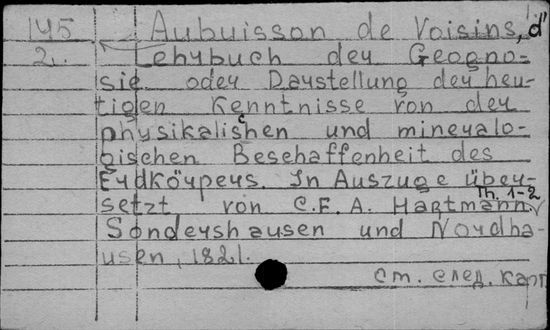 145 Aubuisson de Voisins, d'
2. Lehrbuch der Geogno-
sie oder Darstellung der heu-
tigen Kenntnisse von der
physikalischen und mineralo-
gischen Beschaffenheit des
Erdkörpers. In Auszuge über-
setzt von C.F.A. Hartmann. Th. 1-2
Sondershausen und Nordha-
usen, 1821.
См. след. карт